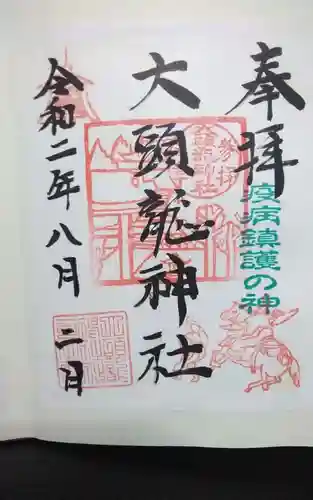 奉拝
疫病鎮護の神
大頭龍神社
令和二年八月二月